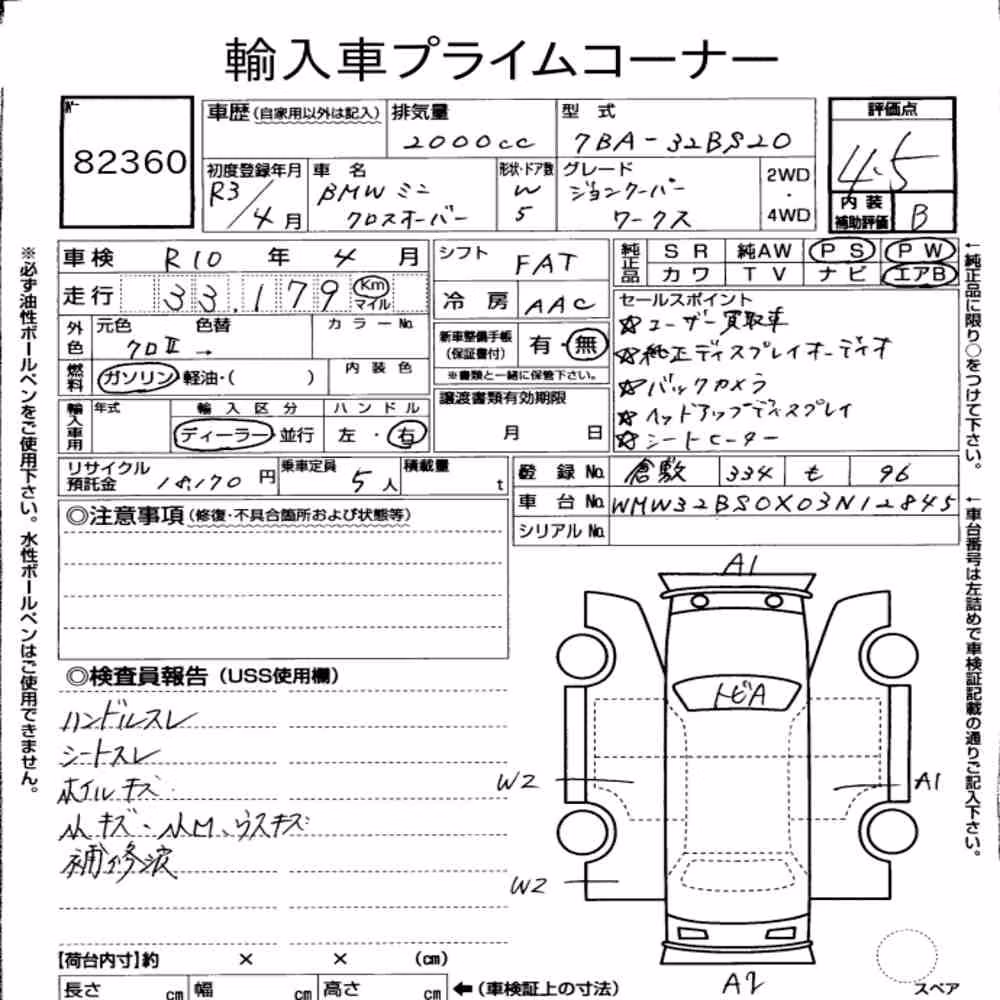 輸入車プライムコーナー
No.
82360
車歴(自家用以外は記入)
排気量
2000cc
型 式
7BA-32BS20
評価点
4.5
初度登録年月
R3/4月
車 名
BMW ミニ
クロスオーバー
形状・ドア数
W
5
グレード
ジョンクーパー
ワークス
2WD
・
4WD
内 装
補助評価
B
車検 R10 年 4 月
シフト FAT
純正品
SR 純AW PS PW
カワ TV ナビ エアB
走行 33,179 Km
マイル
冷房 AAC
セールスポイント
☆ユーザー買取車
☆純正ディスプレイオーディオ
☆バックカメラ
☆ヘッドアップディスプレイ
☆シートヒーター
外色
元色 色替 カラーNo.
クロⅡ →
新車整備手帳
(保証書付)
有・無
※書類と一緒に保管下さい。
燃料
ガソリン・軽油・( )
内装色
譲渡書類有効期限
月 日
輸入車用
年式
輸入区分
ディーラー・並行
ハンドル
左・右
リサイクル
預託金 18,170 円
乗車定員
5人
積載量
t
登録No. 倉敷 334 も 96
車台No. WMW32BS0X03N12845
シリアルNo.
◎注意事項(修復・不具合箇所および状態等)
◎検査員報告(USS使用欄)
ハンドルスレ
シートスレ
ホイルキズ
小キズ・小凹、ウスキズ
補修波
A1
トビA
W2
A1
W2
A2
スペア
【荷台内寸】約 × × (cm)
長さ cm 幅 cm 高さ cm ←(車検証上の寸法)
※必ず油性ボールペンをご使用下さい。水性ボールペンはご使用できません。
←純正品に限り○をつけて下さい。
←車台番号は左詰めで車検証記載の通りご記入下さい。